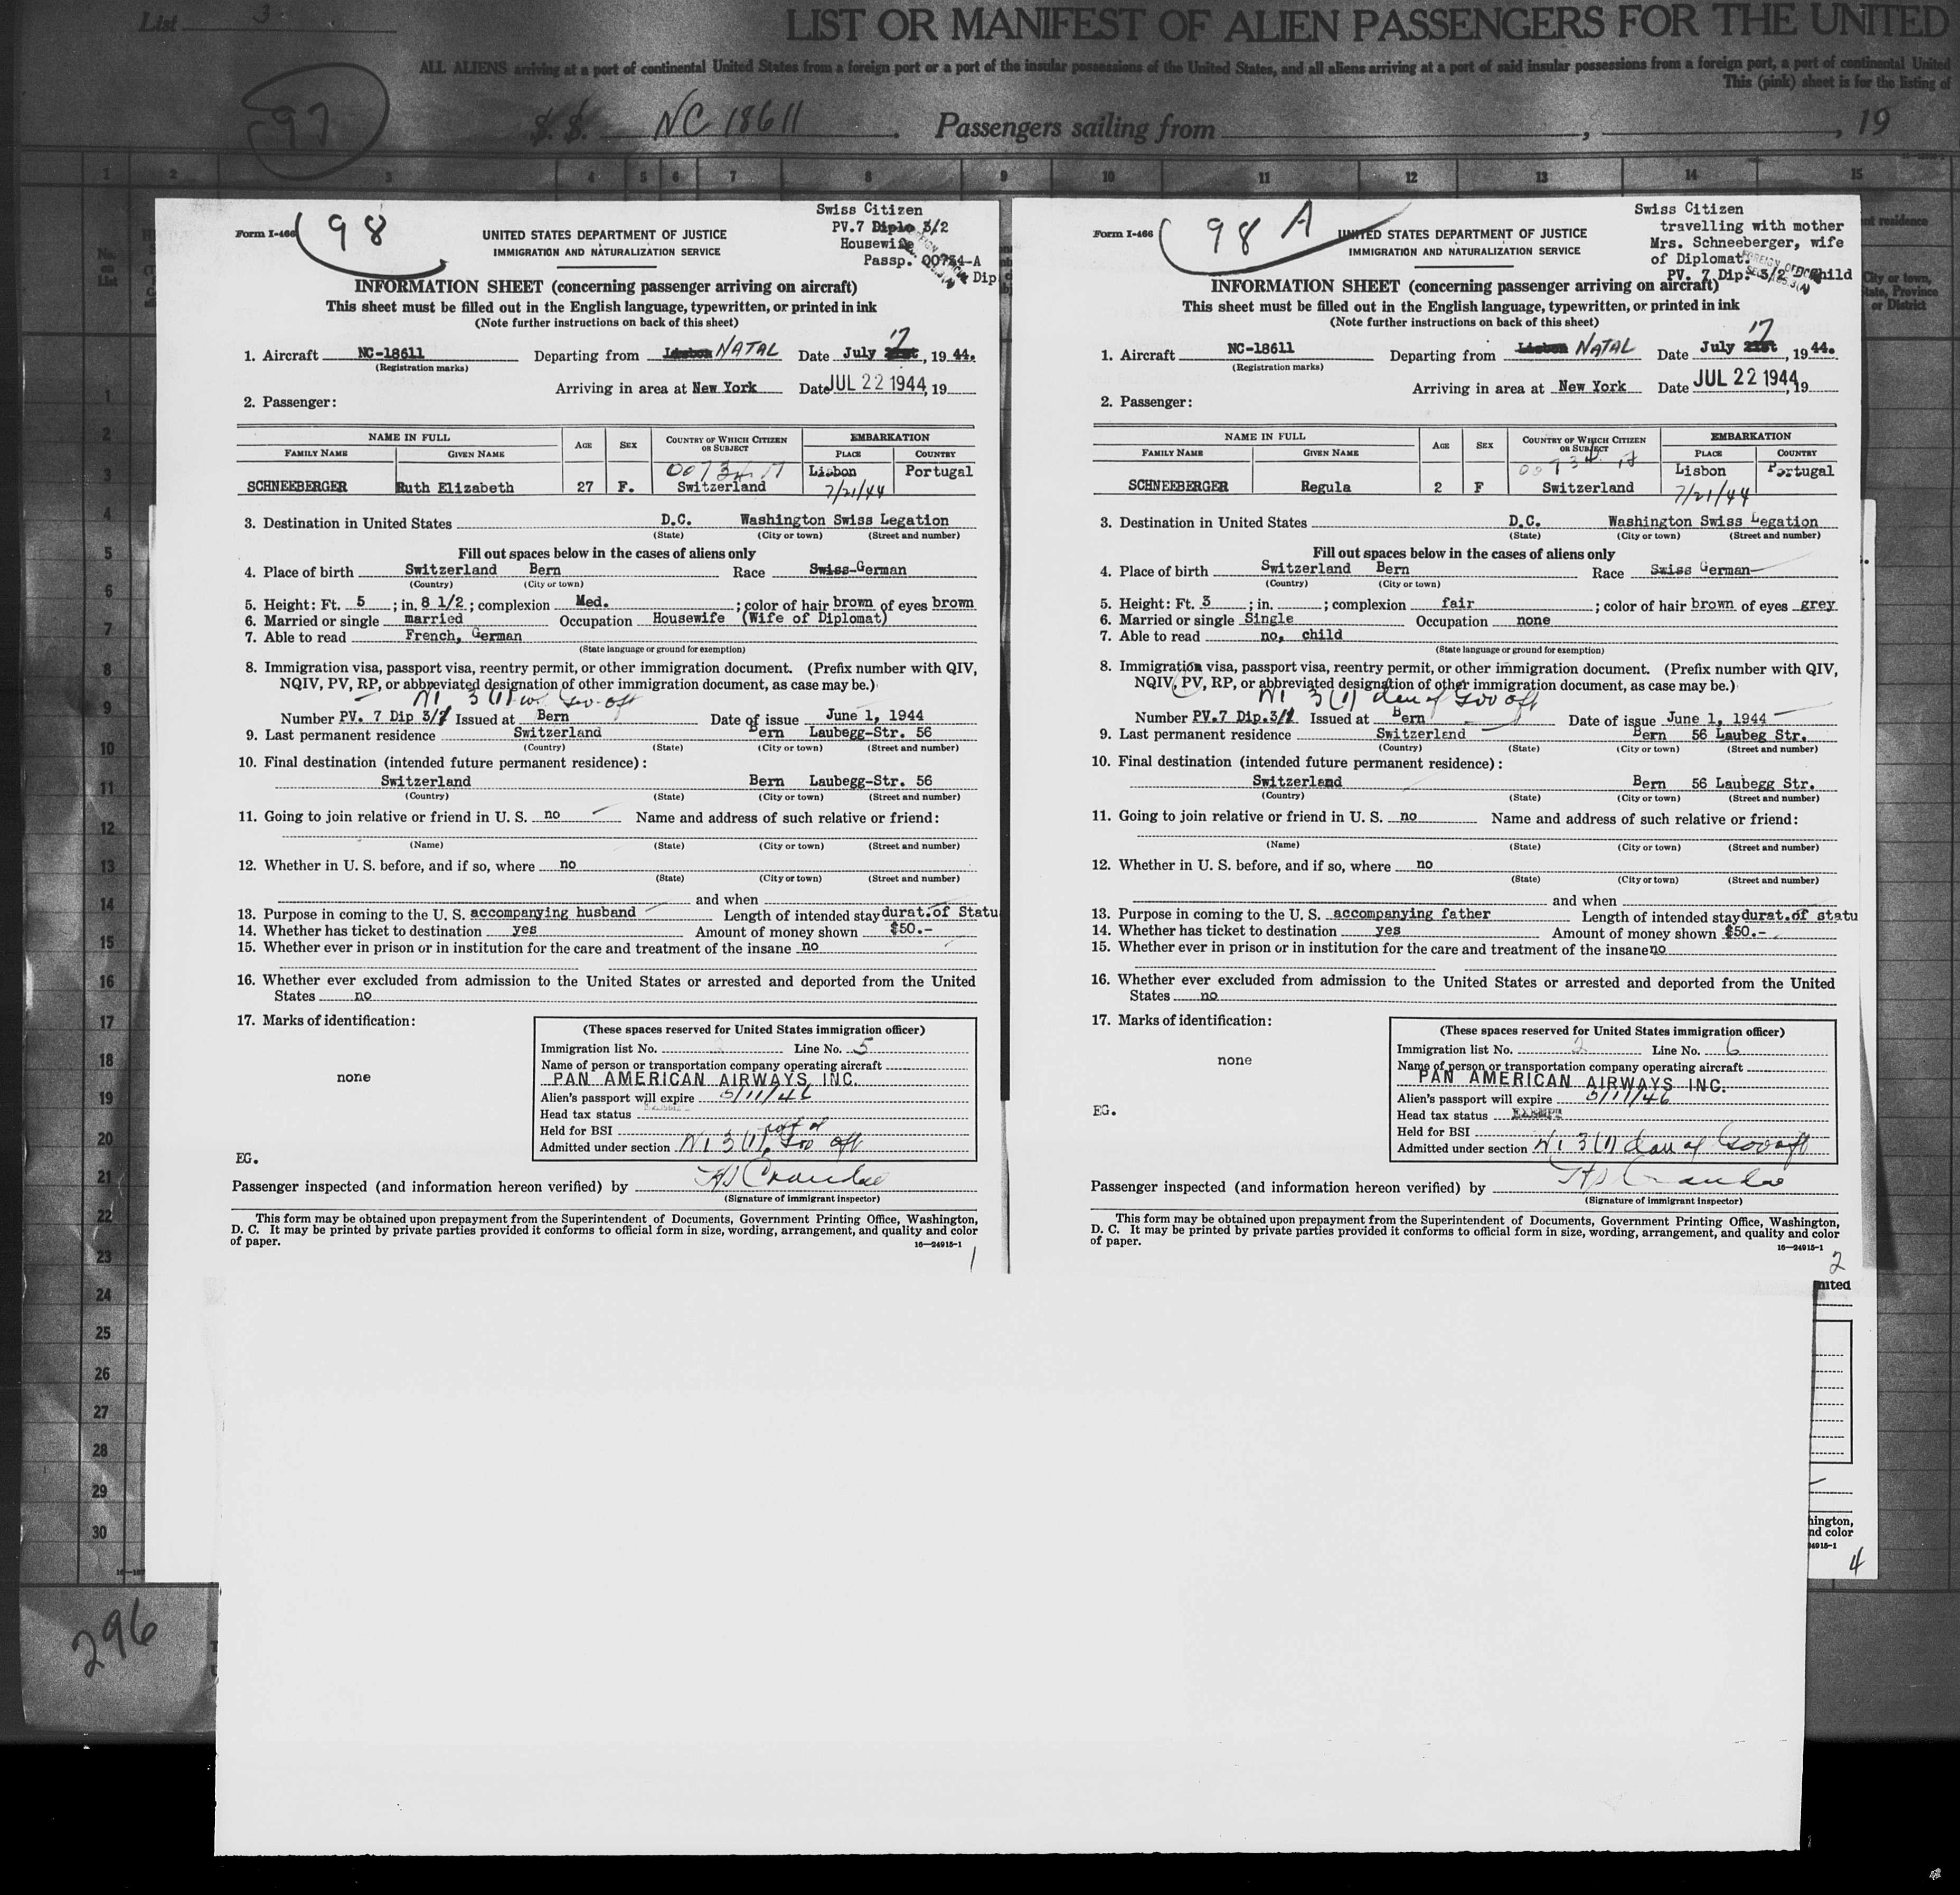 List 3
LIST OR MANIFEST OF ALIEN PASSENGERS FOR THE UNITED
ALL ALIENS arriving at a port of continental United States from a foreign port or a port of the insular possessions of the United States, and all aliens arriving at a port of said insular possessions from a foreign port, a port of continental United
This (pink) sheet is for the listing of
97
S.S. NC 18611 . Passengers sailing from , , 19
1 2 3 4 5 6 7 8 9 10 11 12 13 14 15
No. on List
nt residence
City or town, State, Province or District
1
2
3
4
5
6
7
8
9
10
11
12
13
14
15
16
17
18
19
20
21
22
23
24
25
26
27
28
29
30
296
Form I-466
98
Swiss Citizen
PV.7 Diplo 3/2
Housewife
Passp. 00734-A
Dip
UNITED STATES DEPARTMENT OF JUSTICE
IMMIGRATION AND NATURALIZATION SERVICE
INFORMATION SHEET (concerning passenger arriving on aircraft)
This sheet must be filled out in the English language, typewritten, or printed in ink
(Note further instructions on back of this sheet)
1. Aircraft NC-18611 Departing from Lisbon NATAL Date July 21st 17, 1944.
(Registration marks)
Arriving in area at New York Date JUL 22 1944, 19
2. Passenger:
NAME IN FULL AGE SEX COUNTRY OF WHICH CITIZEN OR SUBJECT EMBARKATION
FAMILY NAME GIVEN NAME PLACE COUNTRY
SCHNEEBERGER Ruth Elizabeth 27 F. Switzerland Lisbon 7/21/44 Portugal
3. Destination in United States D.C. Washington Swiss Legation
(State) (City or town) (Street and number)
Fill out spaces below in the cases of aliens only
4. Place of birth Switzerland Bern Race Swiss-German
(Country) (City or town)
5. Height: Ft. 5 ; in. 8 1/2 ; complexion Med. ; color of hair brown of eyes brown
6. Married or single married Occupation Housewife (Wife of Diplomat)
7. Able to read French, German
(State language or ground for exemption)
8. Immigration visa, passport visa, reentry permit, or other immigration document. (Prefix number with QIV,
NQIV, PV, RP, or abbreviated designation of other immigration document, as case may be.)
Number PV. 7 Dip 3/2 Issued at Bern Date of issue June 1, 1944
9. Last permanent residence Switzerland Bern Laubegg-Str. 56
(Country) (State) (City or town) (Street and number)
10. Final destination (intended future permanent residence):
Switzerland Bern Laubegg-Str. 56
(Country) (State) (City or town) (Street and number)
11. Going to join relative or friend in U. S. no Name and address of such relative or friend:
(Name) (State) (City or town) (Street and number)
12. Whether in U. S. before, and if so, where no
(State) (City or town) (Street and number)
and when
13. Purpose in coming to the U. S. accompanying husband Length of intended stay durat.of Statu
14. Whether has ticket to destination yes Amount of money shown $50.-
15. Whether ever in prison or in institution for the care and treatment of the insane no
16. Whether ever excluded from admission to the United States or arrested and deported from the United
States no
17. Marks of identification:
none
EG.
(These spaces reserved for United States immigration officer)
Immigration list No. 2 Line No. 5
Name of person or transportation company operating aircraft
PAN AMERICAN AIRWAYS INC.
Alien's passport will expire 5/11/46
Head tax status
Held for BSI
Admitted under section
Passenger inspected (and information hereon verified) by
(Signature of immigrant inspector)
This form may be obtained upon prepayment from the Superintendent of Documents, Government Printing Office, Washington,
D. C. It may be printed by private parties provided it conforms to official form in size, wording, arrangement, and quality and color
of paper.
16—24915-1
1
Form I-466
98 A
Swiss Citizen
travelling with mother
Mrs. Schneeberger, wife
of Diplomat.
PV. 7 Dip. 3/2 Child
UNITED STATES DEPARTMENT OF JUSTICE
IMMIGRATION AND NATURALIZATION SERVICE
INFORMATION SHEET (concerning passenger arriving on aircraft)
This sheet must be filled out in the English language, typewritten, or printed in ink
(Note further instructions on back of this sheet)
1. Aircraft NC-18611 Departing from Lisbon NATAL Date July 21st 17, 1944.
(Registration marks)
Arriving in area at New York Date JUL 22 1944, 19
2. Passenger:
NAME IN FULL AGE SEX COUNTRY OF WHICH CITIZEN OR SUBJECT EMBARKATION
FAMILY NAME GIVEN NAME PLACE COUNTRY
SCHNEEBERGER Regula 2 F Switzerland Lisbon 7/21/44 Portugal
3. Destination in United States D.C. Washington Swiss Legation
(State) (City or town) (Street and number)
Fill out spaces below in the cases of aliens only
4. Place of birth Switzerland Bern Race Swiss German
(Country) (City or town)
5. Height: Ft. 3 ; in. ; complexion fair ; color of hair brown of eyes grey
6. Married or single Single Occupation none
7. Able to read no, child
(State language or ground for exemption)
8. Immigration visa, passport visa, reentry permit, or other immigration document. (Prefix number with QIV,
NQIV, PV, RP, or abbreviated designation of other immigration document, as case may be.)
Number PV.7 Dip.3/2 Issued at Bern Date of issue June 1, 1944
9. Last permanent residence Switzerland Bern 56 Laubeg Str.
(Country) (State) (City or town) (Street and number)
10. Final destination (intended future permanent residence):
Switzerland Bern 56 Laubegg Str.
(Country) (State) (City or town) (Street and number)
11. Going to join relative or friend in U. S. no Name and address of such relative or friend:
(Name) (State) (City or town) (Street and number)
12. Whether in U. S. before, and if so, where no
(State) (City or town) (Street and number)
and when
13. Purpose in coming to the U. S. accompanying father Length of intended stay durat.of statu
14. Whether has ticket to destination yes Amount of money shown $50.-
15. Whether ever in prison or in institution for the care and treatment of the insane no
16. Whether ever excluded from admission to the United States or arrested and deported from the United
States no
17. Marks of identification:
none
EG.
(These spaces reserved for United States immigration officer)
Immigration list No. 2 Line No. 6
Name of person or transportation company operating aircraft
PAN AMERICAN AIRWAYS INC.
Alien's passport will expire 5/11/46
Head tax status EXEMPT
Held for BSI
Admitted under section
Passenger inspected (and information hereon verified) by
(Signature of immigrant inspector)
This form may be obtained upon prepayment from the Superintendent of Documents, Government Printing Office, Washington,
D. C. It may be printed by private parties provided it conforms to official form in size, wording, arrangement, and quality and color
of paper.
16—24915-1
2
nited
hington,
nd color
24915-1
4